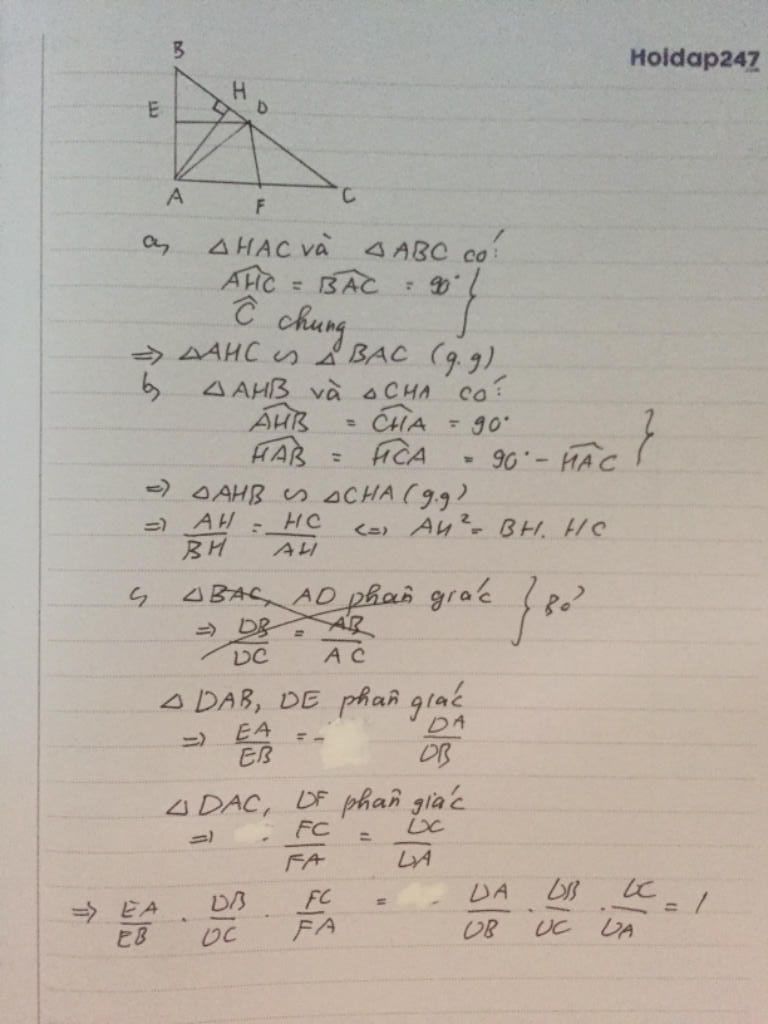 Hoidap247
B
H
E
D
A
F
C
a, △HAC và △ABC có:
AHC = BAC = 90°
Ĉ chung
⇒ △AHC ∽ △BAC (g.g)
b, △AHB và △CHA có:
AHB = CHA = 90°
HAB = HCA = 90° - HAC
⇒ △AHB ∽ △CHA (g.g)
⇒ AH/BH = HC/AH <=> AH² = BH. HC
c, △BAC, AD phân giác } Bỏ
⇒ DB/DC = AB/AC
△DAB, DE phân giác
⇒ EA/EB = DA/DB
△DAC, DF phân giác
⇒ FC/FA = DC/DA
⇒ EA/EB . DB/DC . FC/FA = DA/DB . DB/DC . DC/DA = 1